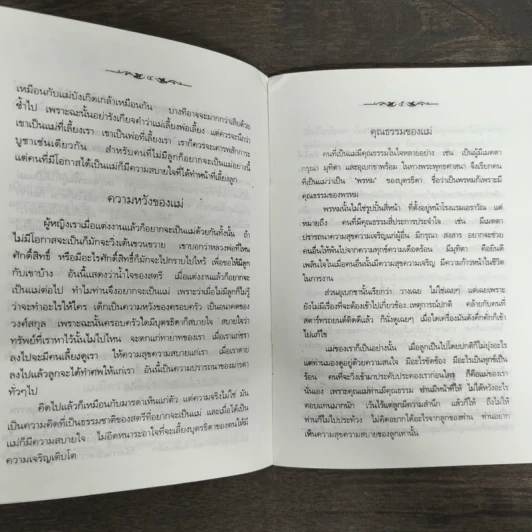 เหมือนกับแม่บังเกิดเกล้าเหมือนกัน บางทีอาจจะมากกว่าเสียด้วย
ซ้ำไป เพราะฉะนั้นอย่ารังเกียจคำว่าแม่เลี้ยงพ่อเลี้ยง แต่ควรจะนึกว่า
เขาเป็นแม่ที่เลี้ยงเรา เขาเป็นพ่อที่เลี้ยงเรา เราก็ควรจะเคารพสักการะ
บูชาเช่นเดียวกัน สำหรับคนที่ไม่มีลูกก็อยากจะเป็นแม่อย่างนี้
แต่คนที่มีโอกาสได้เป็นแม่ก็มีความสบายใจที่ได้ทำหน้าที่เลี้ยงลูก
ความหวังของแม่
ผู้หญิงเราเมื่อแต่งงานแล้วก็อยากจะเป็นแม่ด้วยกันทั้งนั้น ถ้า
ไม่มีโอกาสจะเป็นก็มักจะวิ่งเต้นขวนขวาย เขาบอกว่าหลวงพ่อที่ไหน
ศักดิ์สิทธิ์ หรือมีอะไรศักดิ์สิทธิ์ก็มักจะไปกราบไปไหว้ เพื่อขอให้มีลูก
กับเขาบ้าง อันนี้แสดงว่าน้ำใจของสตรี เมื่อแต่งงานแล้วก็อยากจะ
เป็นแม่ต่อไป ทำไมท่านจึงอยากจะเป็นแม่ เพราะว่าเมื่อไม่มีลูกก็ไม่รู้
ว่าจะทำอะไรให้ใคร เด็กเป็นความหวังของครอบครัว เป็นอนาคตของ
วงศ์สกุล เพราะฉะนั้นครอบครัวใดมีบุตรธิดาก็สบายใจ สบายใจว่า
ทรัพย์ที่เราหาไว้นั้นไม่ไปไหน จะตกแก่ทายาทของเรา เมื่อเราแก่ชรา
ลงไปจะมีคนเลี้ยงดูเรา ให้ความสุขความสบายแก่เรา เมื่อเราตาย
ลงไปแล้วลูกจะได้ทำศพให้แก่เรา อันนี้เป็นความปรารถนาของมารดา
ทั่วๆไป
คิดไปแล้วก็เหมือนกับมารดาเห็นแก่ตัว แต่ความจริงไม่ใช่ มัน
เป็นความคิดที่เป็นธรรมชาติของสตรีที่อยากจะเป็นแม่ และเมื่อได้เป็น
แม่ก็มีความสบายใจ ไม่อิดหนาระอาใจที่จะเลี้ยงบุตรธิดาของตนให้มี
ความเจริญเติบโต
คุณธรรมของแม่
คนที่เป็นแม่มีคุณธรรมในใจหลายอย่าง เช่น เป็นผู้มีเมตตา
กรุณา มุทิตา และอุเบกขาพร้อม ในทางพระพุทธศาสนา จึงเรียกคน
ที่เป็นแม่ว่าเป็น "พรหม" ของบุตรธิดา ชื่อว่าเป็นพรหมก็เพราะมี
คุณธรรมของพรหม
พรหมนั้นไม่ใช่รูปปั้นสี่หน้า ที่ตั้งอยู่หน้าโรงแรมเอราวัณ แต่
หมายถึง คนที่มีคุณธรรมสี่ประการประจำใจ เช่น มีเมตตา
ปรารถนาความสุขความเจริญแก่ผู้อื่น มีกรุณา สงสาร อยากจะช่วย
คนอื่นให้พ้นไปจากความทุกข์ความเดือดร้อน มีมุทิตา คือยินดี
เพลินใจในเมื่อคนอื่นนั้นมีความสุขความเจริญ มีความก้าวหน้าในชีวิต
ในการงาน
ส่วนอุเบกขานั้นเรียกว่า วางเฉย ไม่ใช่เฉยๆ แต่เฉยเพราะ
ยังไม่มีเรื่องที่จะต้องเข้าไปเกี่ยวข้อง เหตุการณ์ปกติ คล้ายกับคนที่
สตาร์ทรถยนต์ติดดีแล้ว ก็นั่งดูเฉยๆ เมื่อใดเครื่องมันดังกึกกักก็เข้า
ไปแก้ไข
แม่ของเราก็เป็นอย่างนั้น เมื่อลูกเป็นไปโดยปกติก็ไม่วุ่นอะไร
แต่ท่านมองดูอยู่ด้วยความสนใจ มีอะไรขัดข้อง มีอะไรเป็นทุกข์เป็น
ร้อน คนที่จะวิ่งเข้ามาประคับประคองเราก่อนใครๆ ก็คือแม่ของเรา
นั่นเอง เพราะคุณแม่ท่านมีคุณธรรม ท่านมีหน้าที่ให้ ไม่ได้หวังอะไร
ตอบแทนมากนัก เว้นไว้แต่ลูกมีความสำนึก แล้วก็ให้ ถึงไม่ให้
ท่านก็ไม่ไปประท้วง ไม่คิดอยากได้อะไรจากลูกของท่าน ท่านอยาก
เห็นความสุขความสบายของลูกเท่านั้น